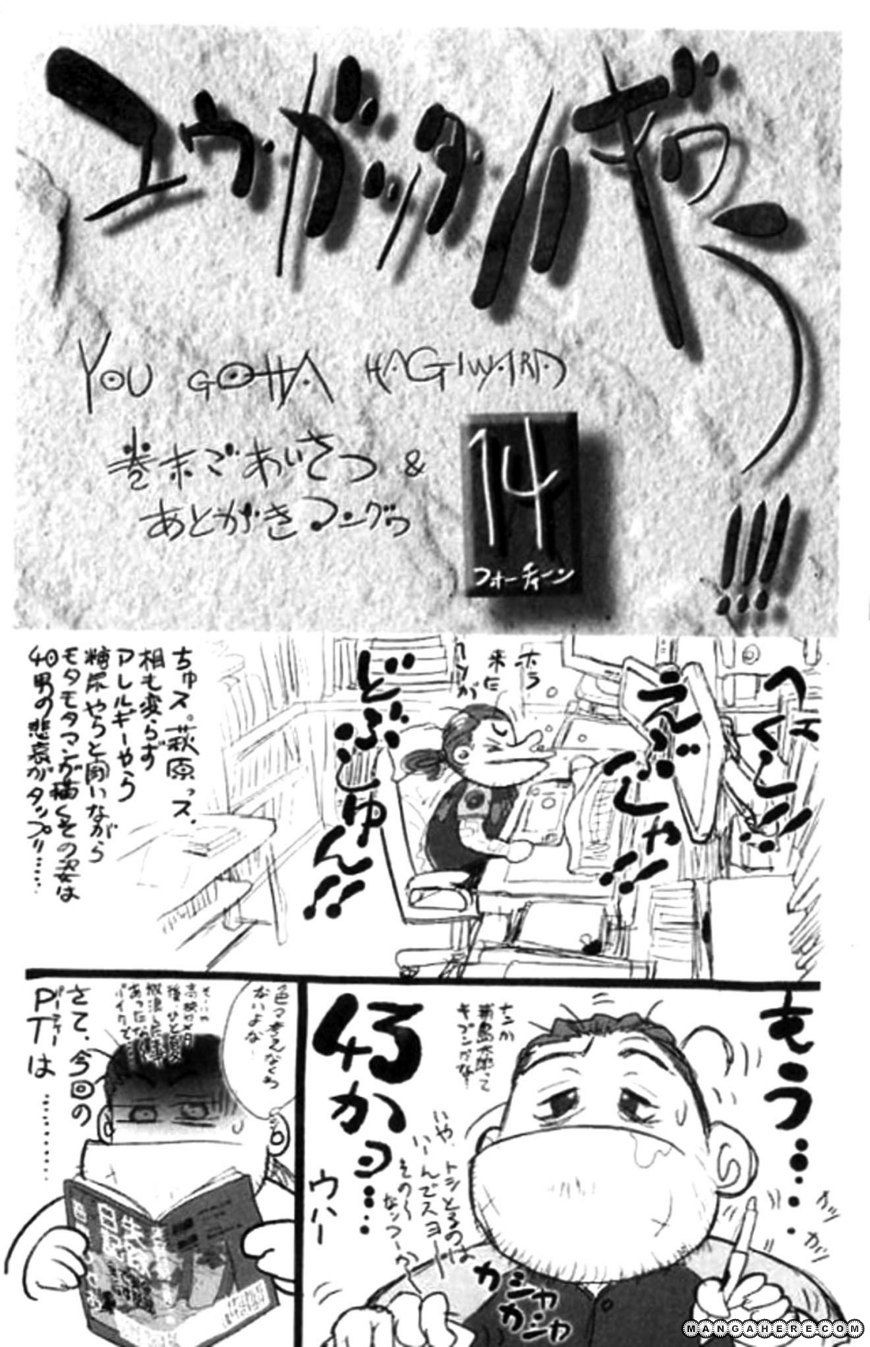 ユウガッタハギワラ!!!
YOU GOTTA HAGIWARA
巻末ごあいさつ &
あとがきマングゥ
14
フォーティーン
へくし!!
えぶしゃ!!
ホラ
来た
どぶしゅん!!
ちゅス。萩原っス。
相も変らず
アレルギーやら
糖尿やらと闘いながら
モタモタマンガ描くその姿は
40男の悲哀がタップリ……
もう…
43かョ…
ウハー
なんか
浦島太郎って
キブンかな?
いや、トシとるのは
いーんでスョー
その〜
なんつーか
ガッ
ガッ
カシャ
カシャ
色々考えなくわ
ないよな…
さて、今回の
PTは…………
パーティー
MANGAHERE.COM